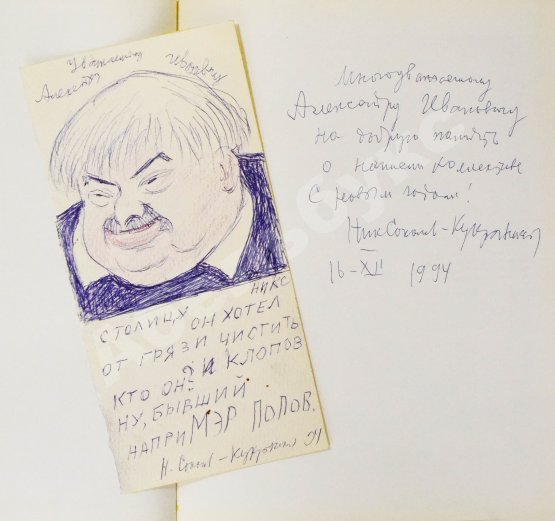 Уважаемому
Александру Ивановичу
НИКС
СТОЛИЦУ ОН ХОТЕЛ
ОТ ГРЯЗИ ЧИСТИТЬ
И КЛОПОВ
КТО ОН?
НУ, БЫВШИЙ
НАПРИМЭР ПОПОВ.
Н. Соколов-Кукрыникс 94
Многоуважаемому
Александру Ивановичу
на добрую память
о нашем коллективе
С новым годом!
Ник Соколов-Кукрыникс
16-XII 1994